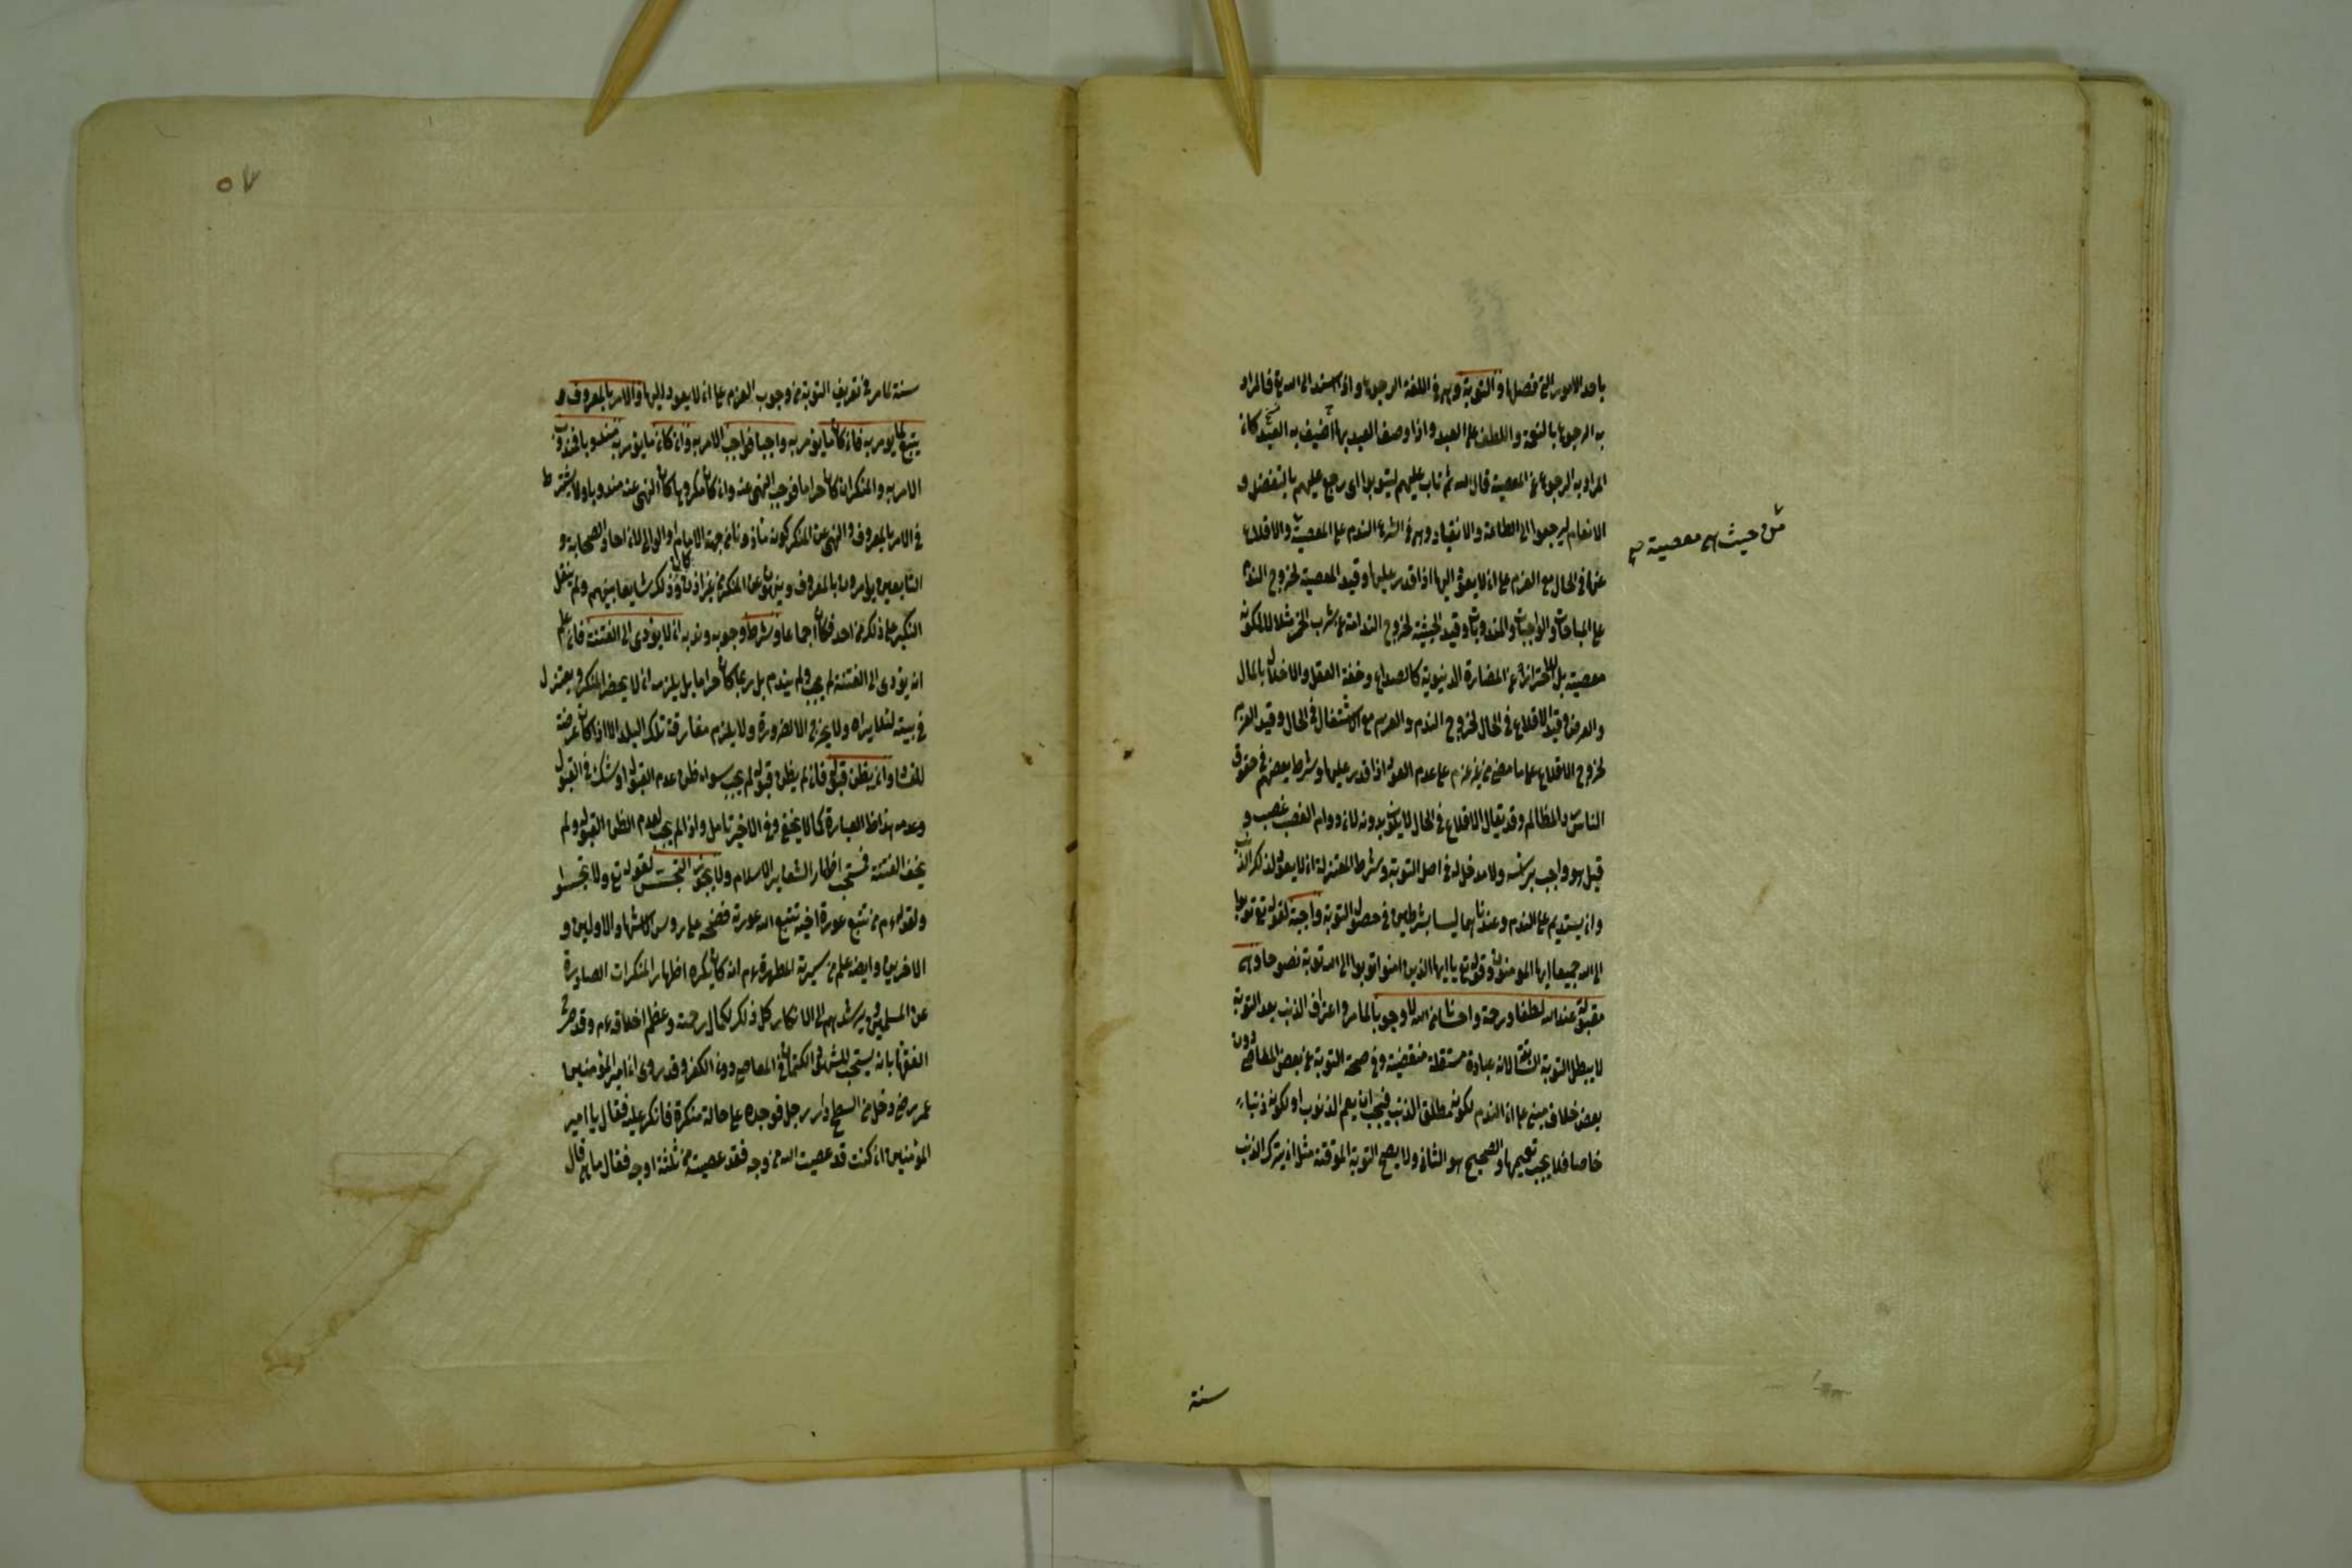 باحد الامور التي فصلها والتوبة وهي في اللغة الرجوع واذا اسند الى الله تع فالمراد
به الرجوع بالنعمة واللطف على العبد واذا وصف العبد بها اضيف به العبد كان
المراد به الرجوع عن المعصية قال الله ثم تاب عليهم ليتوبوا اى رجع عليهم بالتفضل و
الانعام ليرجعوا الى الطاعة والانقياد وهي في الشرع الندم على المعصية والاقلاع
من حيث هي معصية صح
عنها في الحال مع العزم على ان لا يعود اليها اذا قدر عليها وقيد المعصية لخروج الندم
على المباحات والواجبات والمندوبات وقيد الحيثية لخروج الندامة عن شرب الخمر مثلا لا لكونه
معصية بل للاحتراز عن المضارة الدنيوية كالصداع وخفة العقل والاخلال بالمال
والعرض وقيد الاقلاع في الحال لخروج الندم والعزم مع الاشتغال في الحال وقيد العزم
لخروج الاقلاع عما مضى من غير عزم على عدم العود اذا قدر عليها وشرط بعضهم في حقوق
الناس رد المظالم وقد يقال الاقلاع في الحال لا يكون بدونه لان دوام الغصب غصب و
قيل هو واجب برأسه ولا مدخل له في اصل التوبة وشرط المعتزلة ان لا يعود لذلك الذنب
وان يستديم على الندم وعندنا هما ليسا بشرطين في حصول التوبة واجبة لقوله تع توبوا
الى الله جميعا ايها المومنون وقوله تع يا ايها الذين امنوا توبوا الى الله توبة نصوحا وهي
مقبولة عند الله لطفا ورحمة واحسانا من الله لا وجوبا لما مر واعتراف الذنب بعد التوبة
لا يبطل التوبة السابقة لانه عبادة مستقلة منقضية وفي صحة التوبة عن بعض المعاصي دون
بعض خلاف مبني على ان الندم لكونه مطلق الذنب فيجب ان يعم الذنوب او لكونه ذنبا
خاصا فلا يجب تعميمها والصحيح هو الثاني ولا يصح التوبة الموقتة مثل ان يترك الذنب
سنة
٥٧
سنة لما مر في تعريف التوبة من وجوب العزم على ان لا يعود اليها والامر بالمعروف
يتبع لما يومر به فان كان ما يؤمر به واجبا فواجب الامر به وان كان ما يؤمر به مندوبا فمندوب
الامر به والمنكر ان كان حراما فوجب النهي عنه وان كان مكروها كان النهي عنه مندوبا ولا يشترط
في الامر بالمعروف والنهي عن المنكر كونه مأذونا من جهة الامام والوالي لان احاد الصحابة و
التابعين يامرون بالمعروف وينهون عن المنكر من غير اذن وكان ذلك شايعا بينهم ولم ينقل
النكير على ذلك من احد فكان اجماعا وشرط وجوبه وندبه ان لا يؤدى الى الفتنة فان علم
انه يؤدى الى الفتنة لم يجب ولم يندب بل ربما كان حراما بل يلزمه ان لا يحضر المنكر ويعتزل
في بيته لئلا يراه ولا يخرج الا لضرورة ولا يلزم مفارقة تلك البلد الا اذا كان عرضة
للفساد وان يظن قبوله فان لم يظن قبوله لم يجب سواء ظن عدم القبول او شك في القبول
وعدمه هذا ظ العبارة كما لا يخفى وفي الاخير تامل واذا لم يجب لعدم الظن القبول ولم
يخف الفتنة فيستحب اظهار الشعاير الاسلام ولا يجوز التجسس لقوله تع ولا تجسسوا
ولقوله عم من تتبع عورة اخيه تتبع الله عورته ففضحه على روس الاشهاد الاولين و
الاخرين وايضا علم من سيرته المطهرة عم انه كان يكره اظهار المنكرات الصادرة
عن المسلمين ويرشدهم الى الانكار كل ذلك لكمال رحمته وعظم اخلاقه عم وقد صرح
الفقهاء بانه يستحب للشهود الكتمان في المعاصي دون الكفر وقد روى ان امير المؤمنين
عمر رضي دخل من السطح دار رجل فوجده على حالة منكرة فانكر عليه فقال يا امير
المؤمنين ان كنت قد عصيت الله من وجه فقد عصيته من ثلثة اوجه فقال ما هي قال